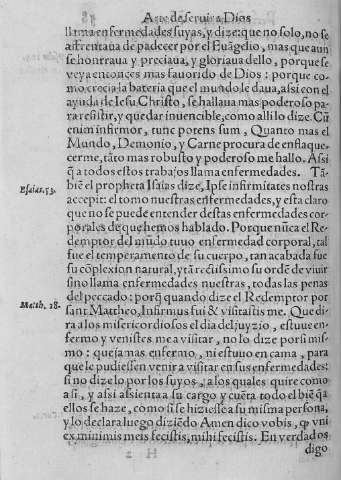 Arte de seruir a Dios
llama enfermedades suyas, y dize: que no solo, no se
afrentaua de padecer por el Euãgelio, mas que aun
se honrraua y preciaua, y gloriaua dello, porque se
veya entonces mas fauorido de Dios: porque co-
mo crecia la bateria que el mundo le daua, assi con el
ayuda de Iesu Christo, se hallaua mas poderoso pa-
ra resistir, y quedar inuencible, como alli lo dize. Cũ
enim infirmor, tunc potens sum, Quanto mas el
Mundo, Demonio, y Carne procura de enflaque-
cerme, tãto mas robusto y poderoso me hallo. Assi
q̃ a todos estos trabajos llama enfermedades. Tã-
Esaiæ. 53.
biẽ el propheta Isaias dize, Ipse infirmitates nostras
accepit: el tomo nuestras enfermedades, y esta claro
que no se puede entender destas enfermedades cor-
porales de que hemos hablado. Porque nũca el Re-
demptor del mũdo tuuo enfermedad corporal, tal
fue el temperamento de su cuerpo, tan acabada fue
su cõplexion natural, y tã rectissimo su ordẽ de viuir
sino llama enfermedades nuestras, todas las penas
del peccado: porq̃ quando dize el Redemptor por
Matth. 28.
sant Mattheo, Infirmus fui & visitastis me. Que di-
ra a los misericordiosos el dia del juyzio, estuue en-
fermo y venistes me a visitar, no lo dize por si mis-
mo: que jamas enfermo, ni estuuo en cama, para
que le pudiessen venir a visitar en sus enfermedades:
si no dize lo por los suyos, a los quales quire como
a si, y assi assienta a su cargo y cuẽta todo el biẽ q̃ a
ellos se haze, como si se hiziesse a su misma persona,
y lo declara luego diziẽdo Amen dico vobis, q̃ vni
ex minimis meis fecistis, mihi fecistis. En verdad os
digo